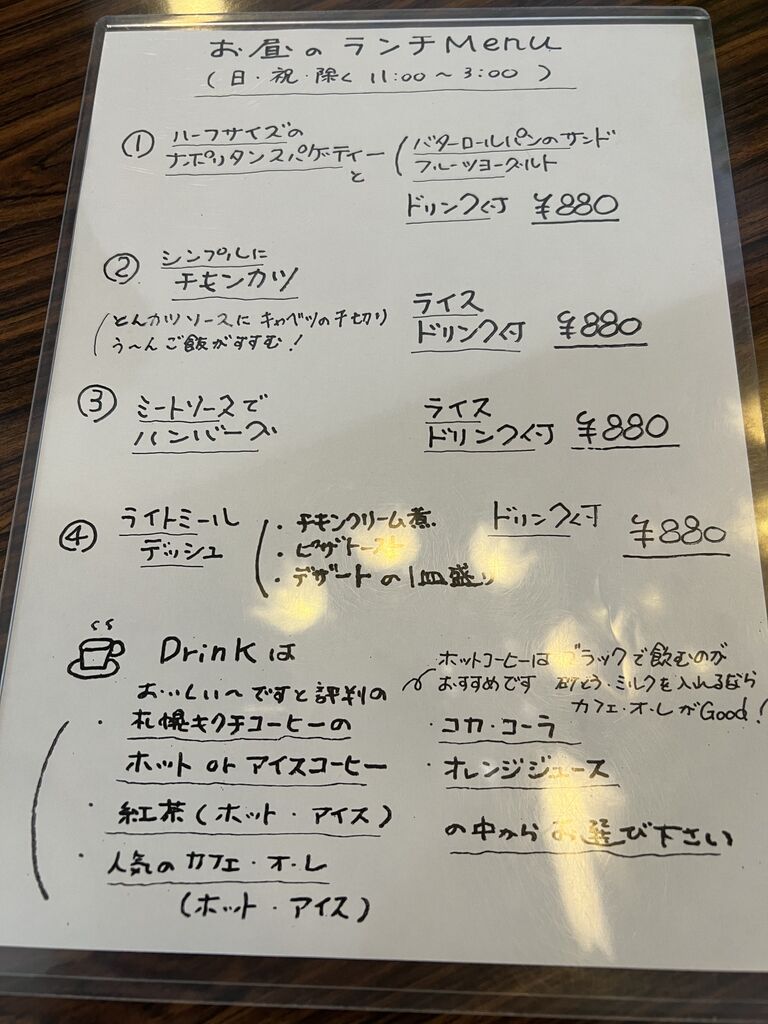 お昼のランチMenu
(日・祝・除く 11:00～3:00 )
① ハーフサイズの
ナポリタンスパゲティーと
(バターロールパンのサンド
フルーツヨーグルト
ドリンク付 ¥880
② シンプルに
チキンカツ
(とんカツソースにキャベツの千切り
う～んご飯がすすむ!
ライス
ドリンク付 ¥880
③ ミートソースで
ハンバーグ
ライス
ドリンク付 ¥880
④ ライトミール
デッシュ
・チキンクリーム煮
・ピザトースト
・デザートの1皿盛り
ドリンク付 ¥880
Drinkは
おいしい～ですと評判の
・札幌キクチコーヒーの
ホット or アイスコーヒー
・紅茶(ホット・アイス)
・人気のカフェ・オ・レ
(ホット・アイス)
ホットコーヒーはブラックで飲むのが
おすすめです 砂とう・ミルクを入れるなら
カフェ・オ・レがGood!
・コカ・コーラ
・オレンジジュース
の中からお選び下さい